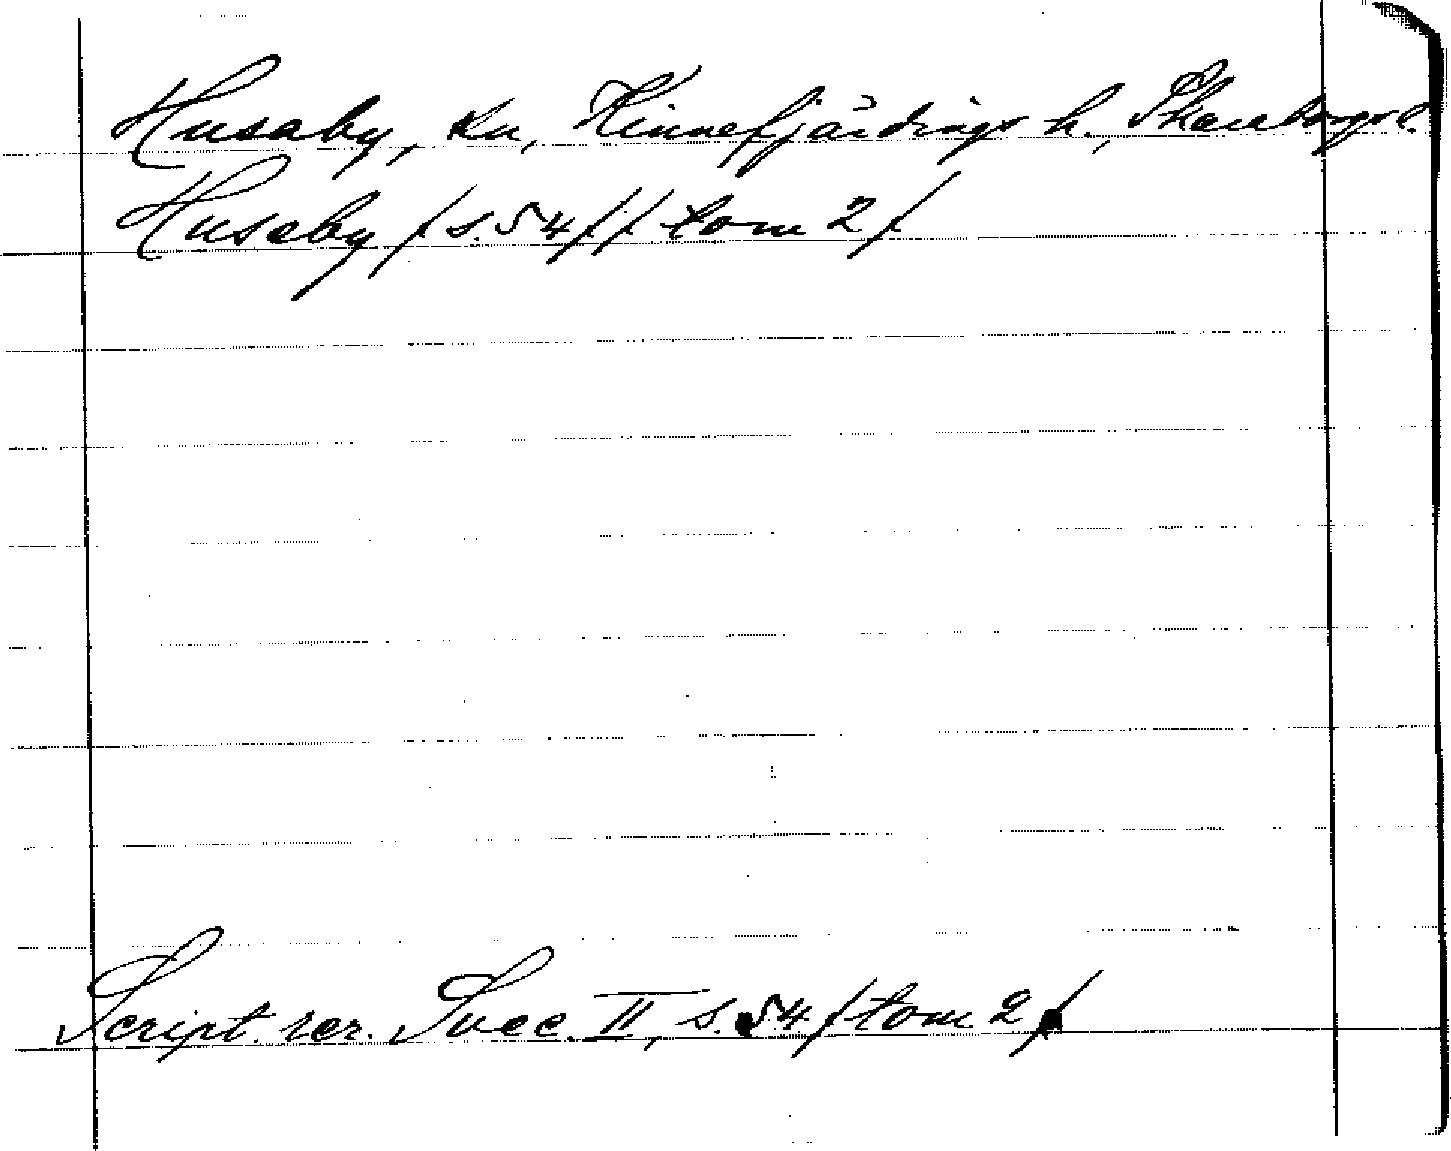 Husaby, sn, Kinnefjärdings h., Skaraborgs l.
Huseby /s. 54/ / tom 2/
Script. rer. Svec. II, s. 54 /tom 2/